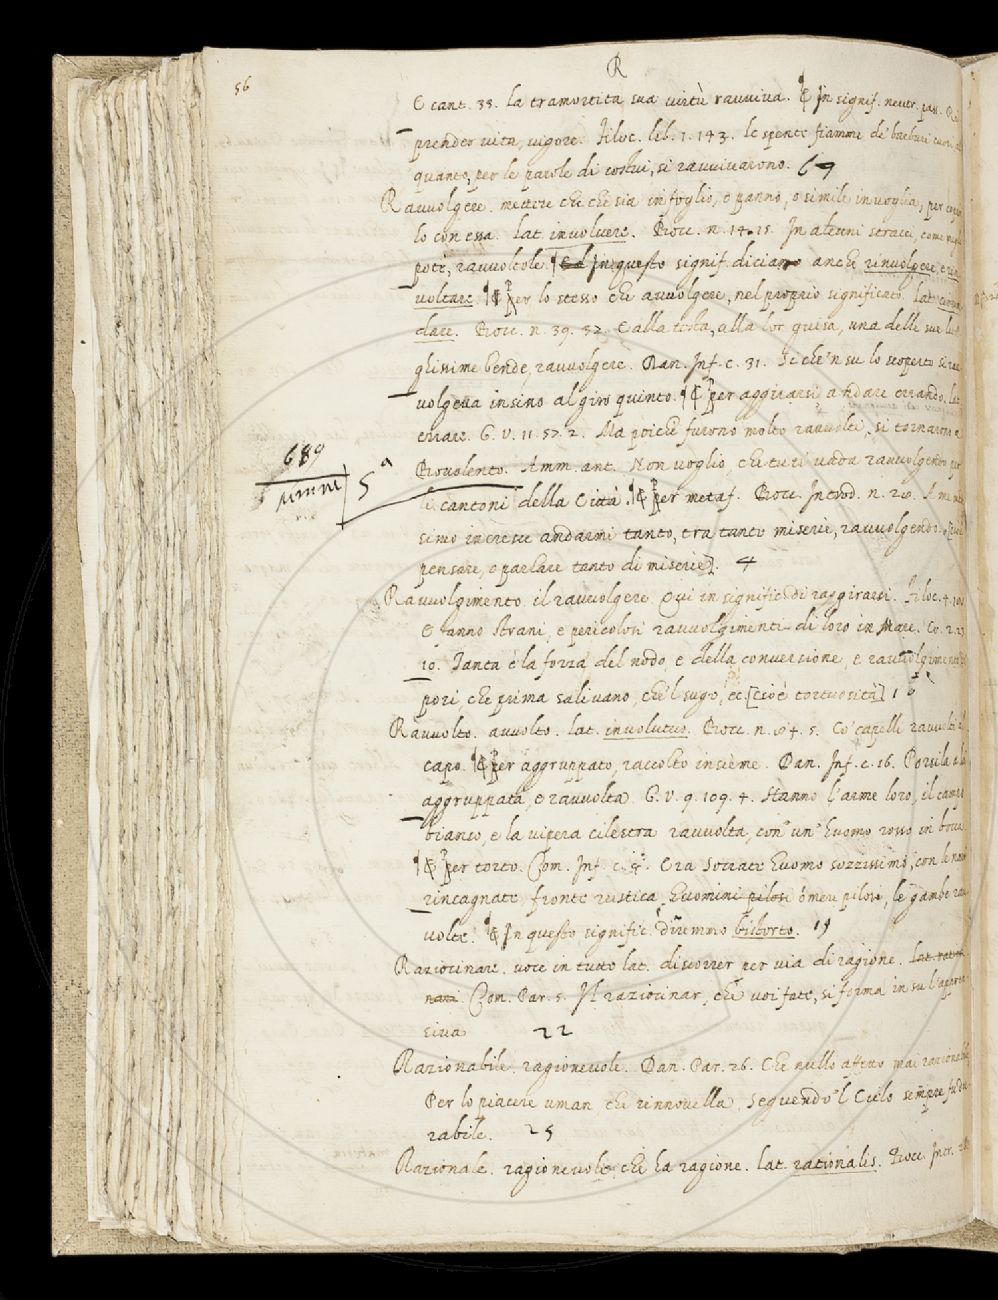 56
R
E cant. 33. la tramortita sua virtù ravviva. ¶ E In signif. neutr. pass. Ri
prender vita, vigore. Filoc. lib. 1. 143. le spente fiamme de' barbari cuori
quanto, per le parole di costui, si ravvivarono. 69
Ravvolgere. mettere che che sia in foglio, o panno, o simile invoglia, per
lo con essa. Lat. involvere. Bocc. n. 14. 15. In alcuni stracci, come
poté, ravvoltole. ¶ Ed In questo signif. diciamo anche rinvolgere, e rin
voltare. ¶ E Per lo stesso che avvolgere, nel proprio significato. Lat. circun
dare. Bocc. n. 39. 32. E alla testa, alla lor guisa, una delle sue lun
ghissime bende, ravvolgere. Dan. Inf. c. 31. Sì che 'n su lo scoperto si rav
volgeva insino al giro quinto. ¶ E Per aggirarsi andare errando. Lat.
errare. G. V. 11. 52. 2. Ma poiché furono molto ravvolti, si tornarono a
Provolento. Amm. ant. Non voglio, che tu ti vada ravvolgendo per
li cantoni della Città. ¶ E Per metaf. Bocc. Introd. n. 20. A me
simo incresce andarmi tanto, tra tante miserie, ravvolgendo.
pensare, o parlare tanto di miserie]. 4
689
5 a
Ravvolgimento. il ravvolgere. Qui in signific. di raggirarsi. Filoc. 4.
E fanno strani, e pericolosi ravvolgimenti di loro in Mare. Co. 2. 23
10. Tanta è la forza del nodo, e della conversione, e ravvolgimento
pori, che prima salivano, che 'l sugo, ec. [cioè tortuosità] 16
Ravvolto. avvolto. Lat. involutus. Bocc. n. 64. 5. Co' capelli ravvolti al
capo. ¶ E Per aggruppato, raccolto insieme. Dan. Inf. c. 16. Porsila a lui
aggruppata, e ravvolta. G. V. 9. 109. 4. Hanno l'arme loro, il campo
bianco, e la vipera cilestra ravvolta, con un' huomo rosso in bocca
¶ E Per torto. Com. Inf. c. Era Socrate huomo sozzissimo, con le nari
rincagnate, fronte rustica, huomini pilosi omeri pilosi, le gambe rav
volte. ¶ E In questo signific. diremmo bistorto. 19
Raziocinare. voce in tutto lat. discorrer per via di ragione. Lat. ratioci
nari. Com. Par. 5. Il raziocinar, che voi fate, si forma in su l'appren
siva 22
Razionabile. ragionevole. Dan. Par. 26. Che nullo affetto mai razionabile
Per lo piacere uman che rinnovella, Seguendo 'l Cielo sempre fu du
rabile. 25
Razionale. ragionevole, che ha ragione. Lat. rationalis. Bocc. Intr.